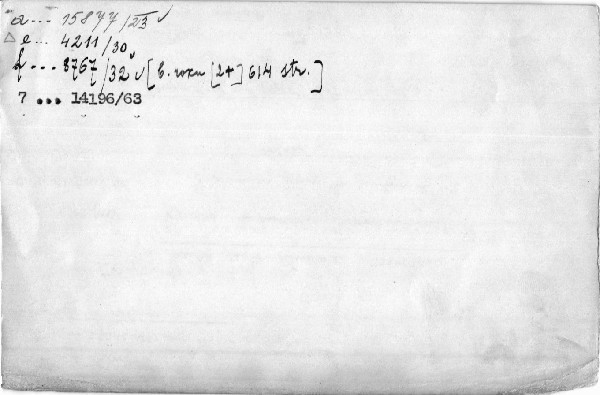 a... 15877/23 ✓
△ e... 4211/30
f... 8767/32 ✓ [b. roku [2+] 614 str.]
7 ... 14196/63